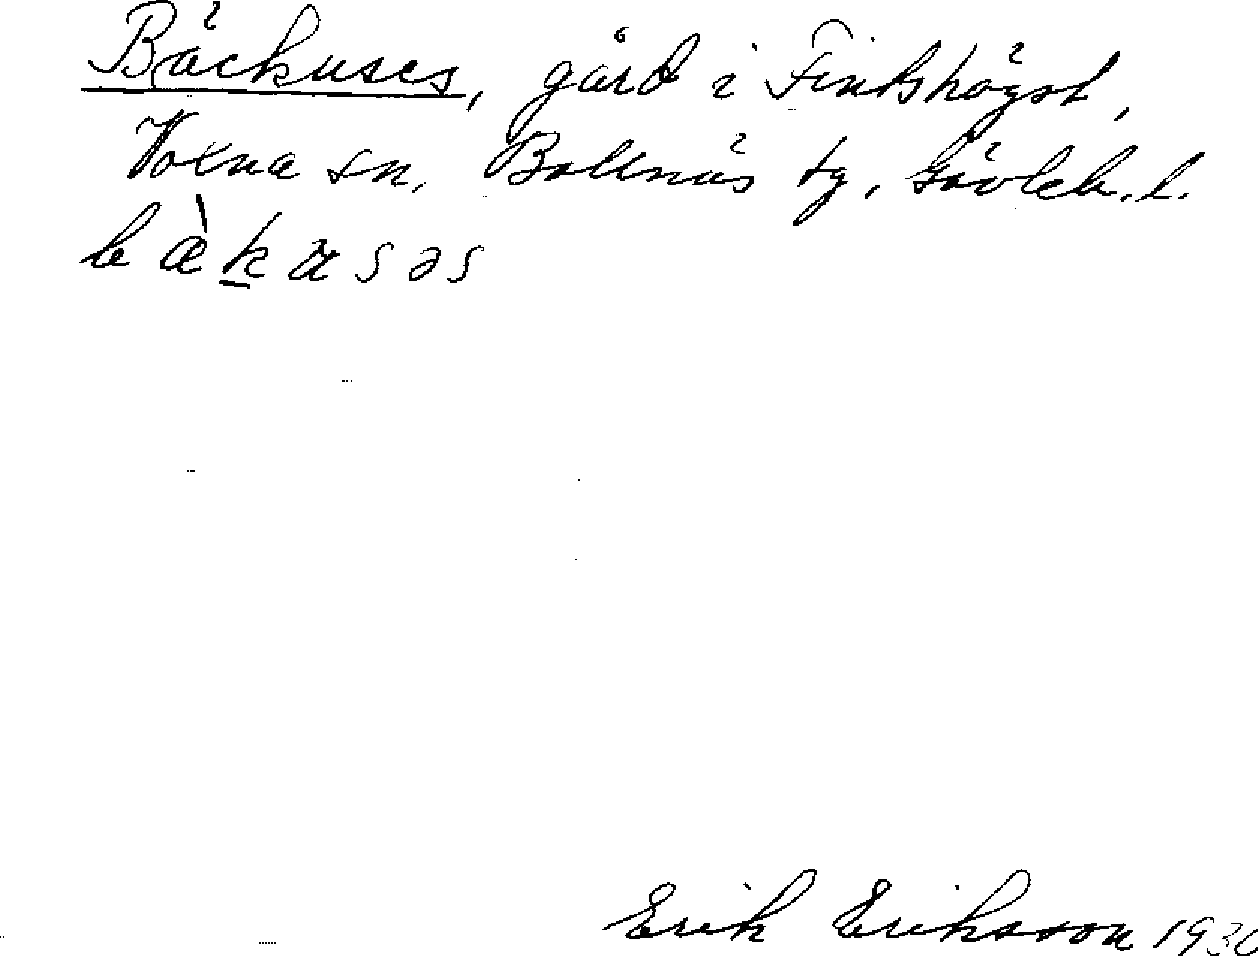 Bäckuses, gård i Finkshögst,
Voxna sn, Bollnäs tg, Gävleb. l.
bæ̀k̲asəs
Erik Eriksson 1930